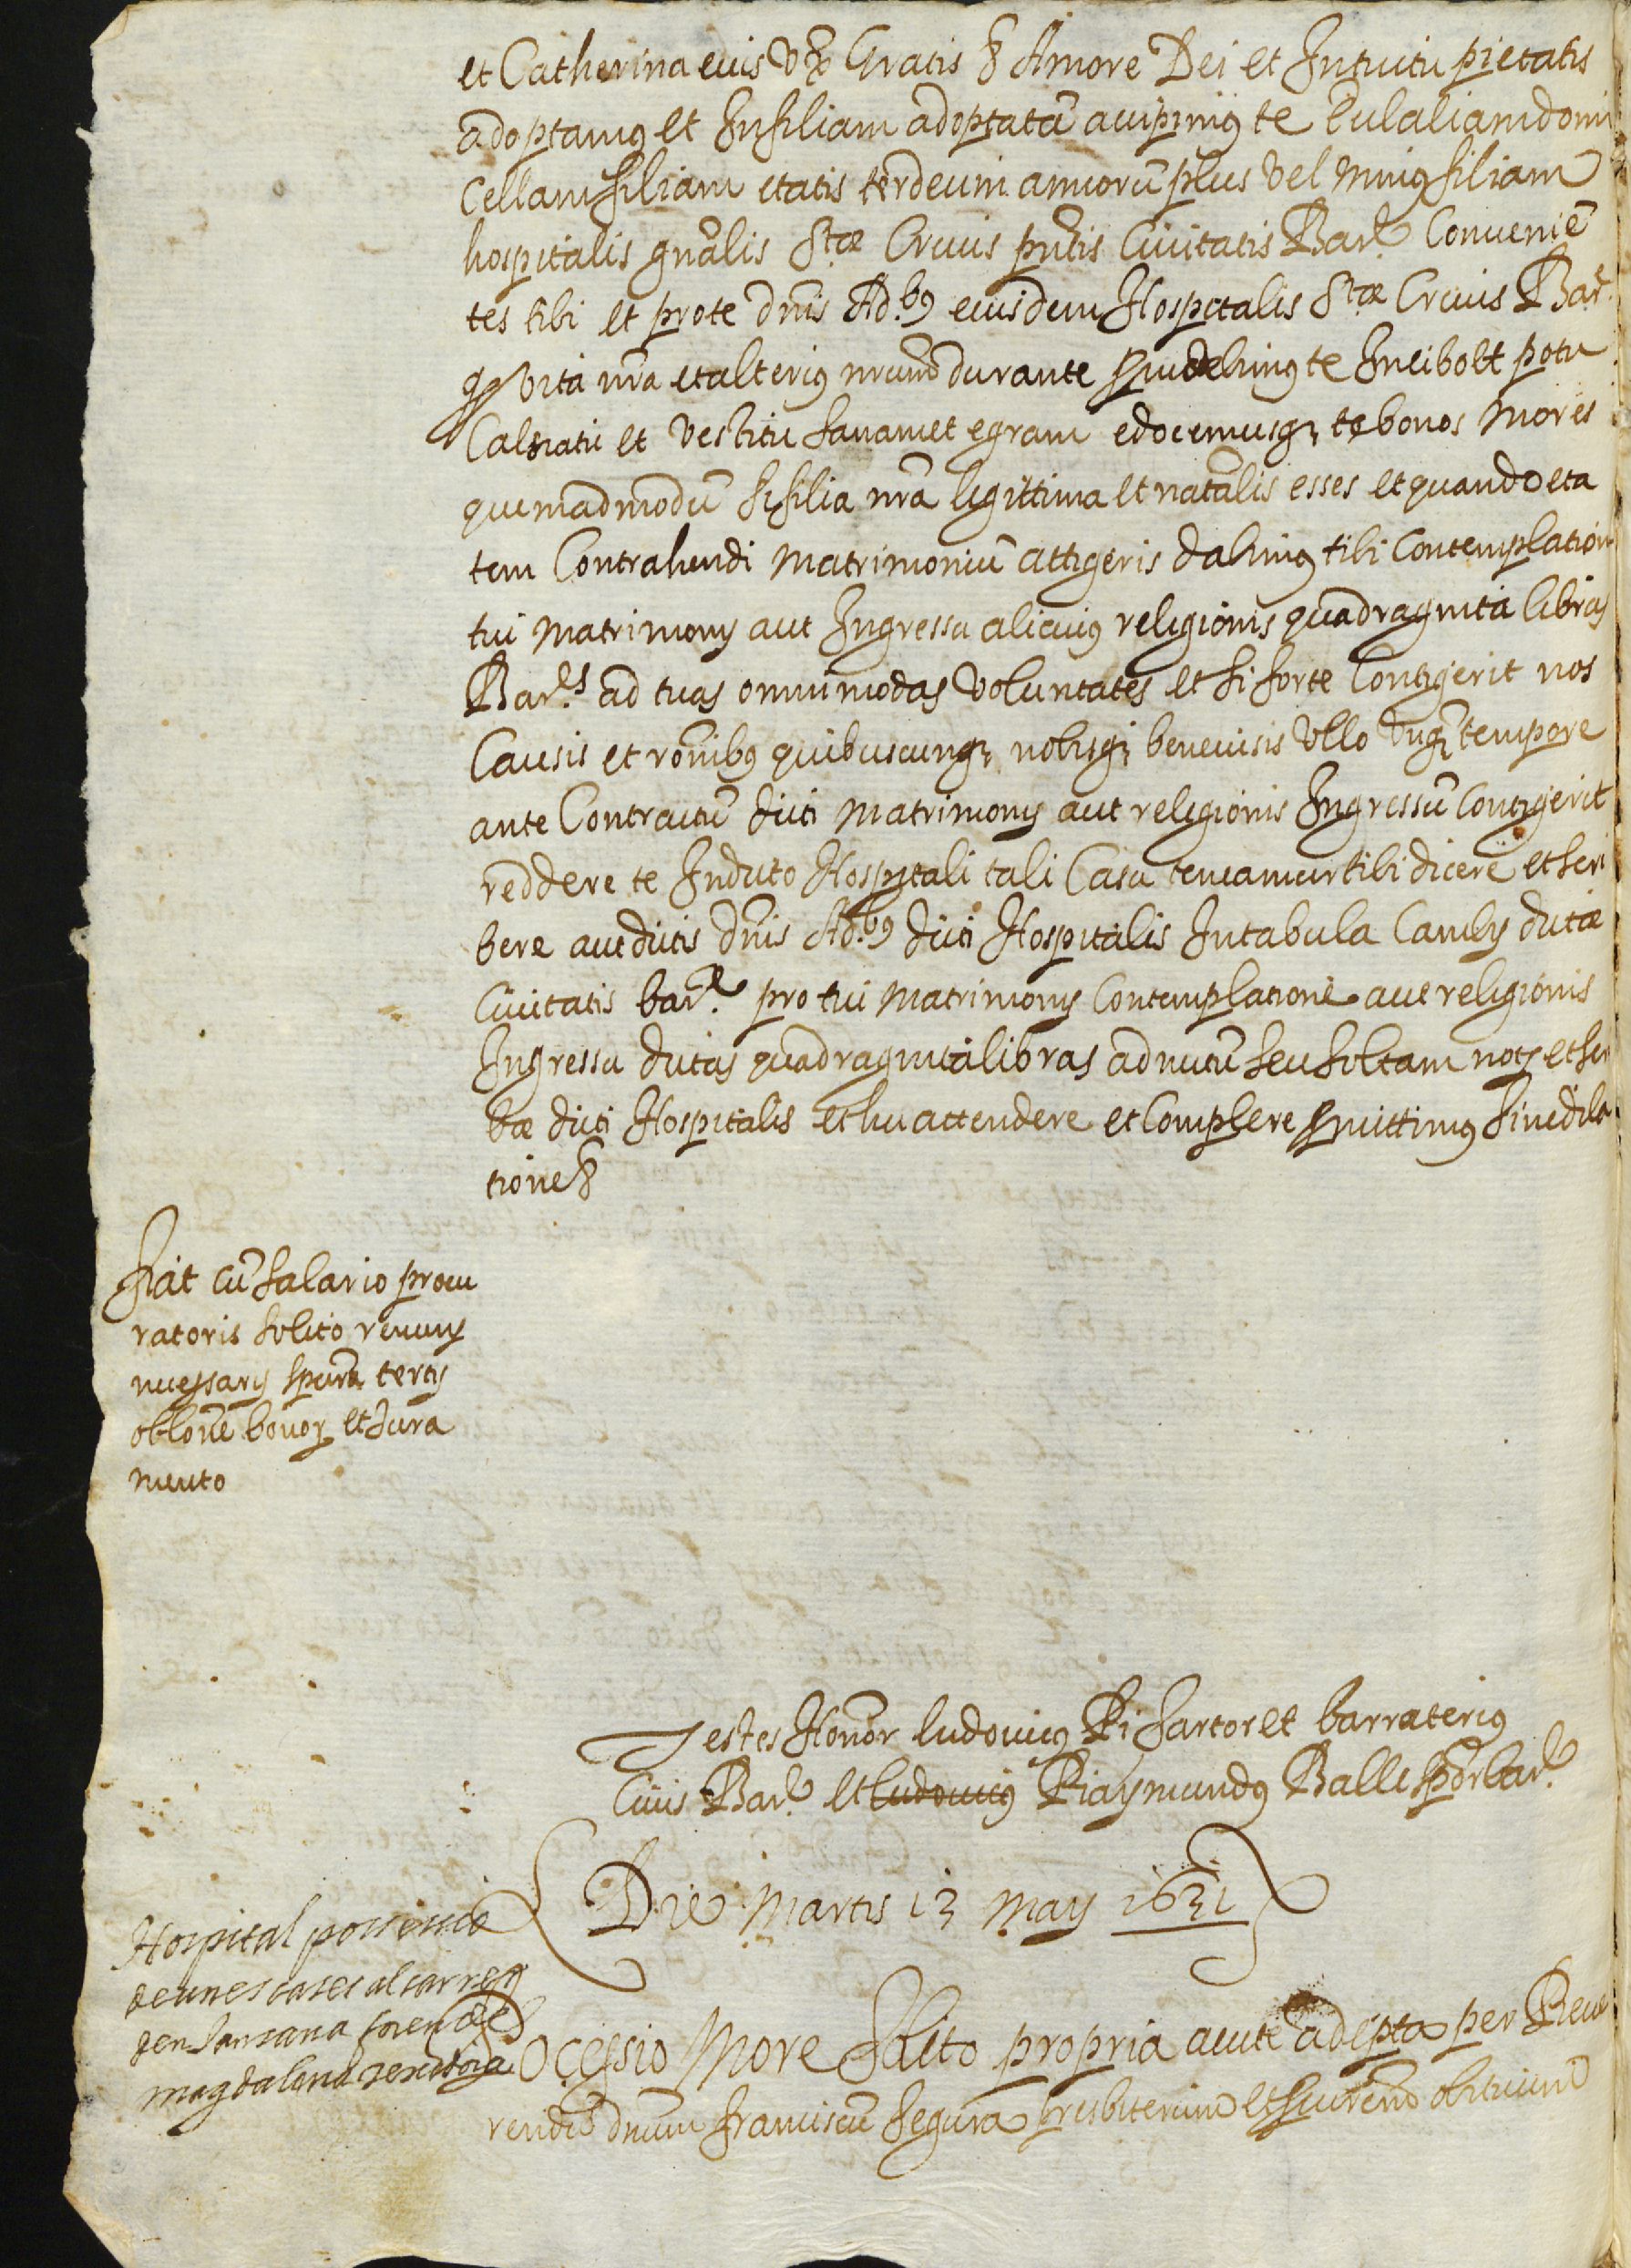 et Catherina eius Vx̃ Gratis & Amore Dei et Intuitu pietatis
adoptamus et Infiliam adoptatã accipimus te Eulaliam domi
cellam filiam etatis terdecim annorũ plus vel minus filiam
hospitalis gñalis Stæ Crucis pñtis Ciuitatis Bar.e Conueniẽ
tes tibi et pro te dñis Ad.bus eiusdem Hospitalis Stæ Crucis Bar.e
qd vita nrã et alterius nrum durante prouidebimus te In cibo et potu
Calsiatu et vestitu sanam et egram edocemusq; te bonos mores
quemadmodũ si filia nrã legittima et natalis esses et quando eta
tem Contrahendi matrimoniũ attigeris dabimus tibi Contemplation
tui matrimonij aut Ingressu alicuius religionis quadraginta libras
Bar.es ad tuas omnimodas voluntates et si forte Contigerit nos
Causis et rõnibus quibuscunq; nobisq; beneuisis Vllo vnq; tempore
ante Contractũ dicti matrimonij aut religionis Ingressũ Contigerit
reddere te In dicto Hospitali tali Casu teneamur tibi dicere et scri
bere aut dictis dñis Ad.bus dicti Hospitalis In tabula Cambij dictæ
Ciuitatis bar.e pro tui matrimonij Contemplatione aut religionis
Ingressu dictas quadraginta libras ad nutũ seu soltam notj et scri
bæ dicti Hospitalis et hec attendere et Complere promittimus sine dila
tione &
Fiat cũ salario procu
ratoris solito
necessarijs tertij
oblone bonor et Jura
mento
Testes Honor Ludouicus Pi sartor et barraterius
Ciuis Bar.e et Ludouicus Riaymundus Balle Bar.e
Die Martis 13 May 1631
Hospital possessio
de unes cases al carrer
den Sanzana foren de
magdalena
Possessio More solito propria adepta per Reue
rendũ dnum franciscũ Segura presbiterum